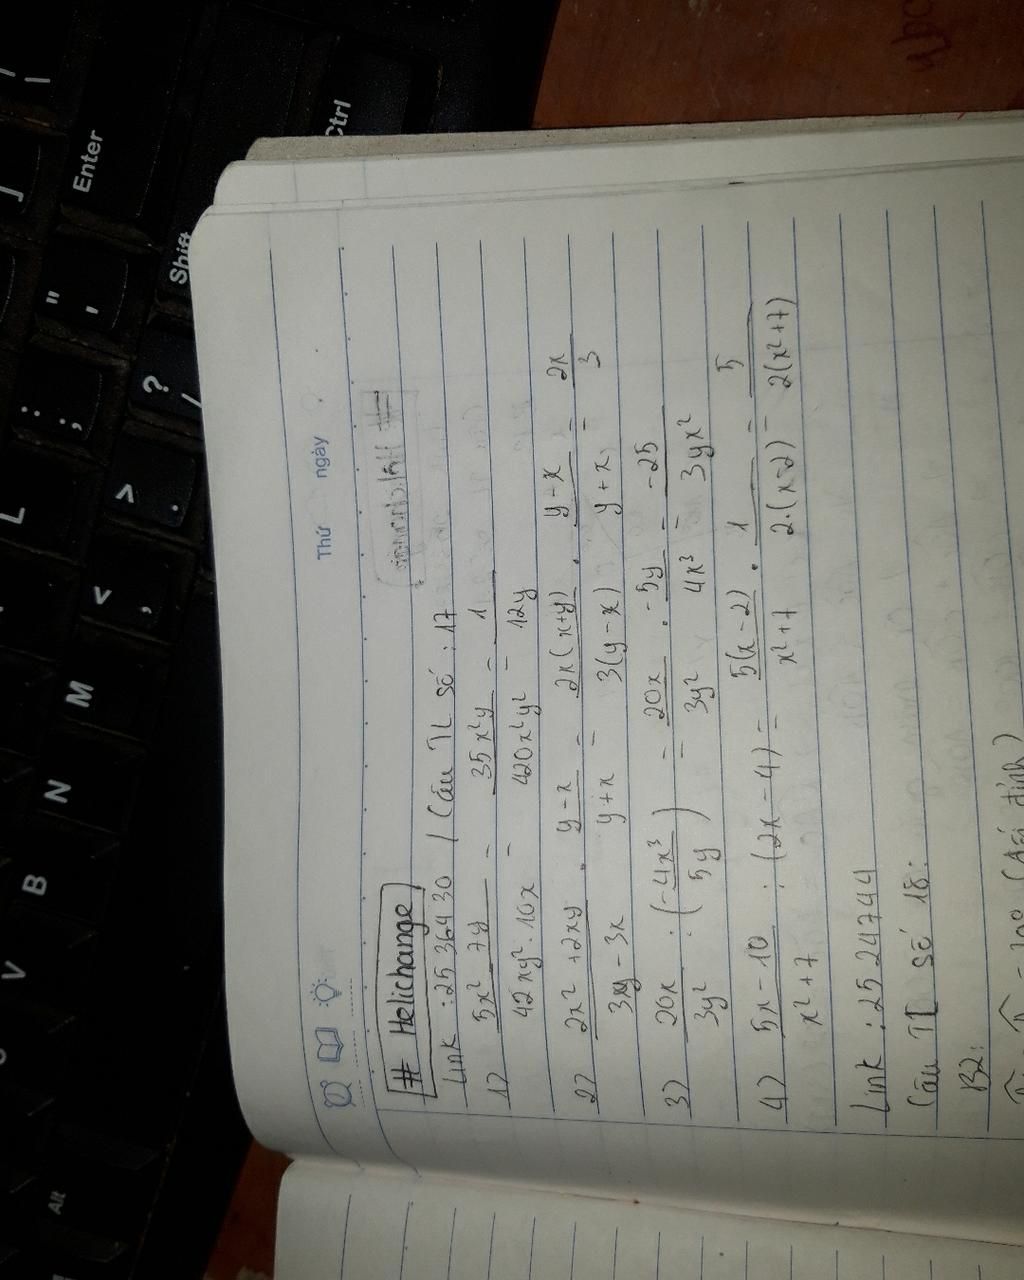 Thứ ngày
# Helichange
Link : 2536430 / Câu TL số : 17
1) 5x² 7y / 42xy² . 10x = 35x²y / 420x²y² = 1 / 12y
2) 2x² + 2xy / 3xy - 3x . y - x / y + x = 2x(x+y) / 3(y-x) . y - x / y + x = 2x / 3
3) 20x / 3y² : (-4x³ / 5y) = 20x / 3y² . -5y / 4x³ = -25 / 3yx²
4) 5x - 10 / x² + 7 : (2x - 4) = 5(x - 2) / x² + 7 . 1 / 2.(x-2) = 5 / 2(x²+7)
Link : 2524744
Câu TL số 18:
B2:
Enter
Shift
Ctrl
Alt
L
M
N
B
V
" '
: ;
? /
> .
< ,
]